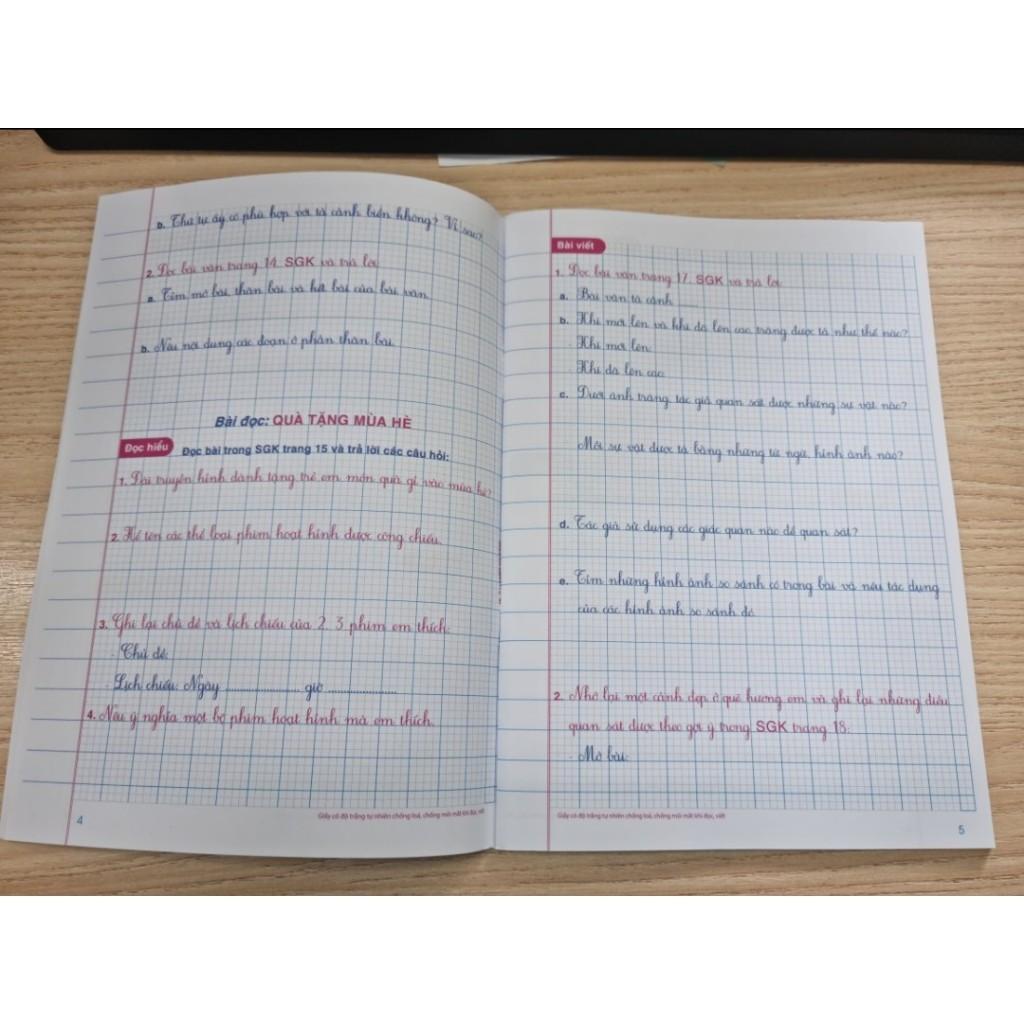 b. Thứ tự ấy có phù hợp với tả cảnh biển không? Vì sao?
2. Đọc bài văn trang 14, SGK và trả lời:
a. Tìm mở bài, thân bài và kết bài của bài văn.
b. Nêu nội dung các đoạn ở phần thân bài.
Bài đọc: QUÀ TẶNG MÙA HÈ
Đọc hiểu
Đọc bài trong SGK trang 15 và trả lời các câu hỏi:
1. Đài truyền hình dành tặng trẻ em món quà gì vào mùa hè?
2. Kể tên các thể loại phim hoạt hình được công chiếu.
3. Ghi lại chủ đề và lịch chiếu của 2, 3 phim em thích.
- Chủ đề:
- Lịch chiếu: Ngày .................... giờ ....................
4. Nêu ý nghĩa một bộ phim hoạt hình mà em thích.
Giấy có độ trắng tự nhiên chống loá, chống mỏi mắt khi đọc, viết
4
Bài viết
1. Đọc bài văn trang 17, SGK và trả lời:
a. Bài văn tả cảnh ........
b. Khi mới lên và khi đã lên cao, trăng được tả như thế nào?
- Khi mới lên:
- Khi đã lên cao:
c. Dưới ánh trăng, tác giả quan sát được những sự vật nào?
Mỗi sự vật được tả bằng những từ ngữ, hình ảnh nào?
d. Tác giả sử dụng các giác quan nào để quan sát?
e. Tìm những hình ảnh so sánh có trong bài và nêu tác dụng
của các hình ảnh so sánh đó.
2. Nhớ lại một cảnh đẹp ở quê hương em và ghi lại những điều
quan sát được theo gợi ý trong SGK trang 18:
- Mở bài:
Giấy có độ trắng tự nhiên chống loá, chống mỏi mắt khi đọc, viết
5